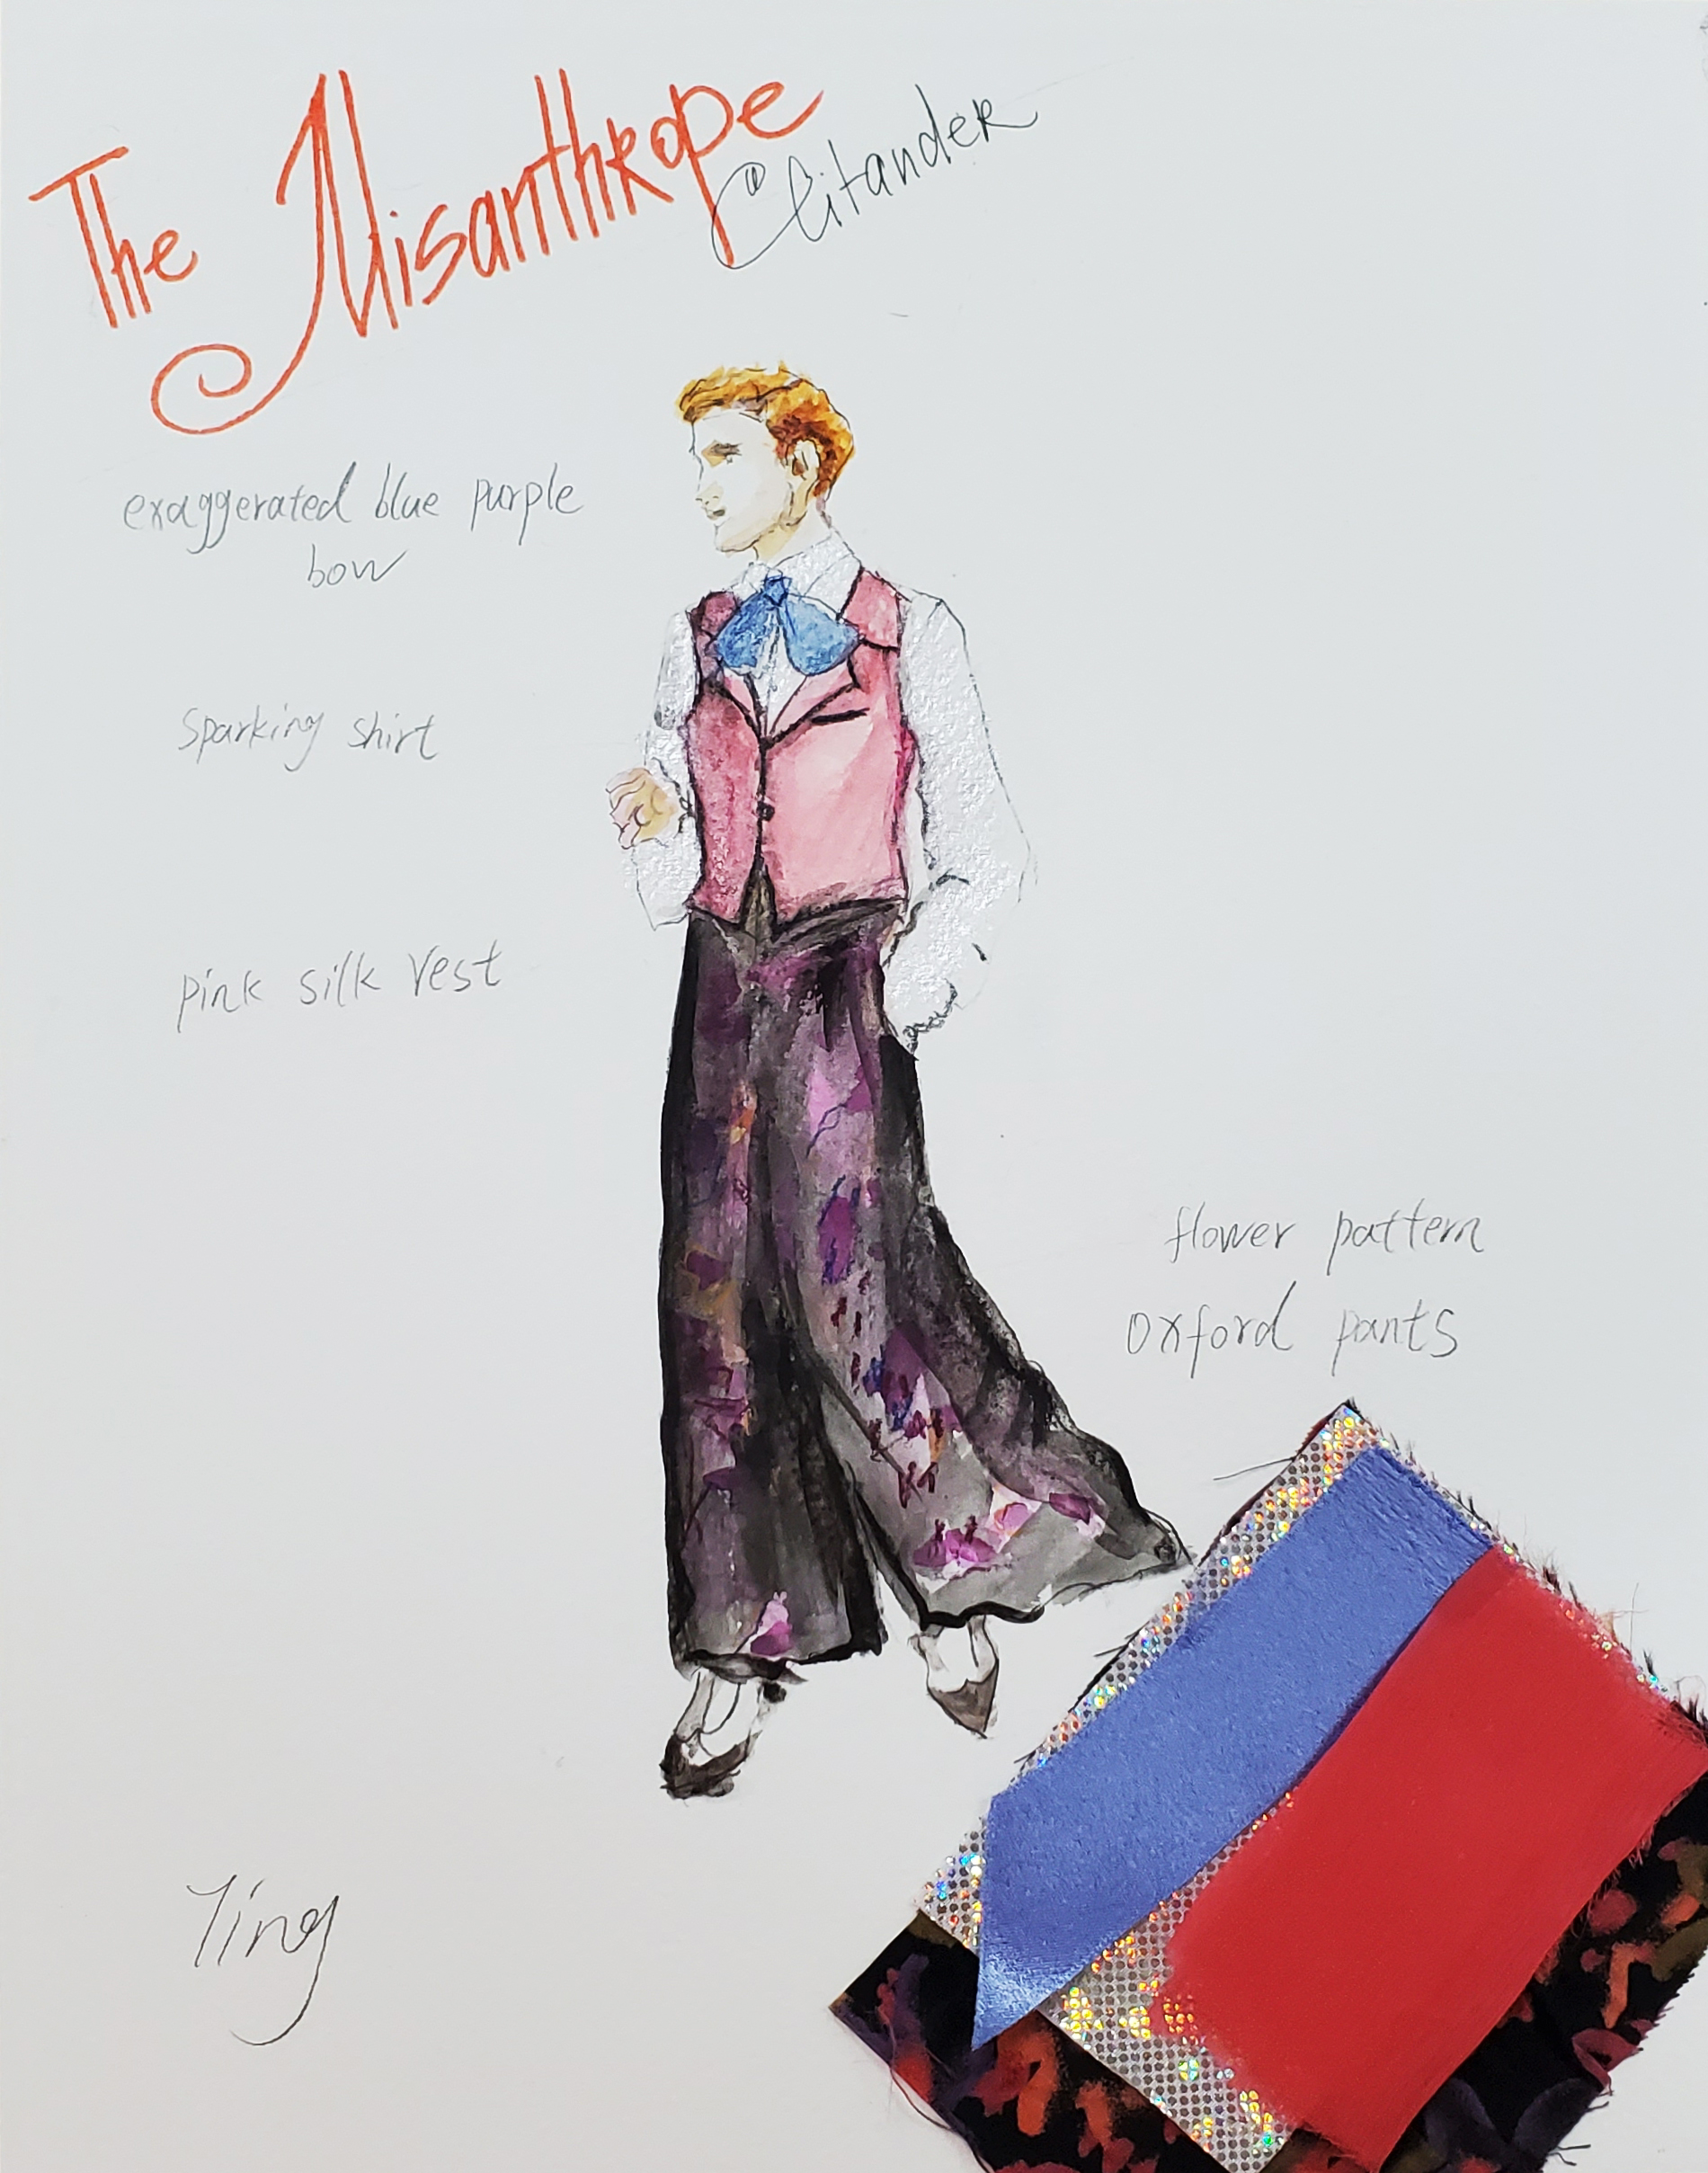 The Misanthrope
Clitander
exaggerated blue purple
bow
Sparking shirt
pink silk vest
flower pattern
oxford pants
Ting